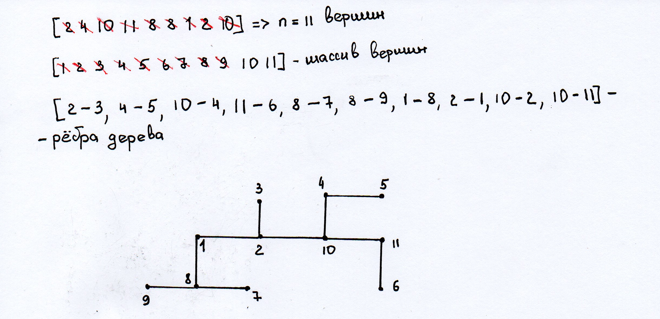 [2 4 10 11 8 8 1 2 10] => n = 11 вершин
[1 2 3 4 5 6 7 8 9 10 11] - массив вершин
[2-3, 4-5, 10-4, 11-6, 8-7, 8-9, 1-8, 2-1, 10-2, 10-11] -
- рёбра дерева
3 4 5
1 2 10 11
9 8 7 6